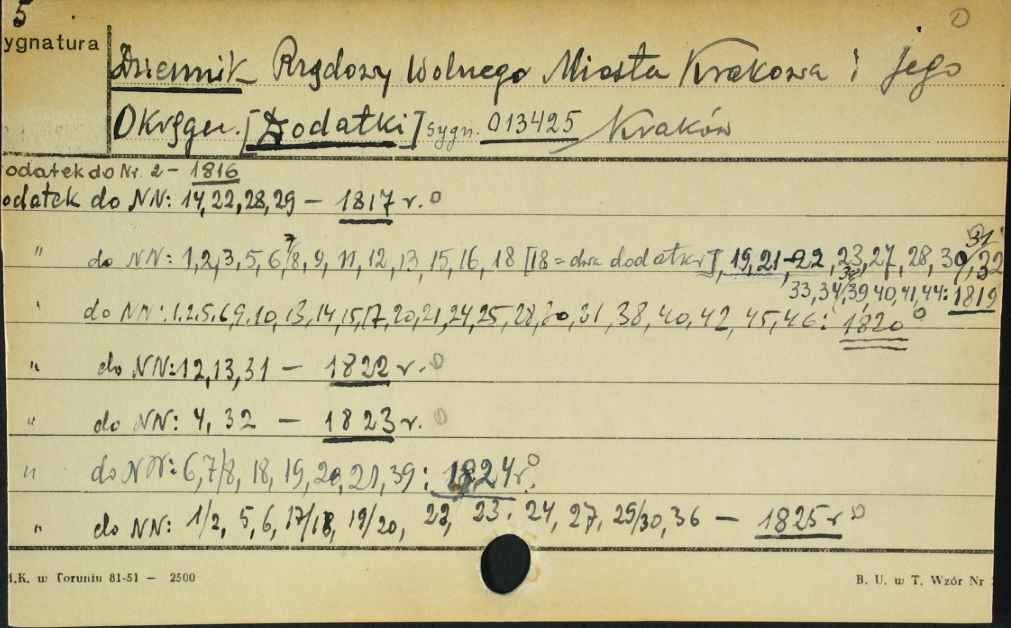 5
ygnatura
Dziennik Rządowy Wolnego Miasta Krakowa i jego
Okręgu. [Dodatki] sygn. 013425 Kraków
odatek do Nr. 2 - 1816
odatek do NN: 14, 22, 28, 29 - 1817 r.
" do NN: 1, 2, 3, 5, 6, 7/8, 9, 11, 12, 13, 15, 16, 18 [18 = dwa dodatki], 19, 21-22, 23, 27, 28, 30/31, 32
33, 34, 39, 40, 41, 44: 1819
" do NN: 1. 2. 5. 6, 9. 10, 13, 14, 15, 17, 20, 21, 24, 25, 28, 30, 31, 38, 40, 42, 45, 46: 1820
" do NN: 12, 13, 31 - 1822 r.
" do NN: 4, 32 - 1823 r.
" do NN: 6, 7/8, 18, 19, 20, 21, 39: 1824 r.
" do NN: 1/2, 5, 6, 17/18, 19/20, 22, 23. 24, 27, 25/30, 36 - 1825 r
.K. w Toruniu 81-51 - 2500
B. U. w T. Wzór Nr